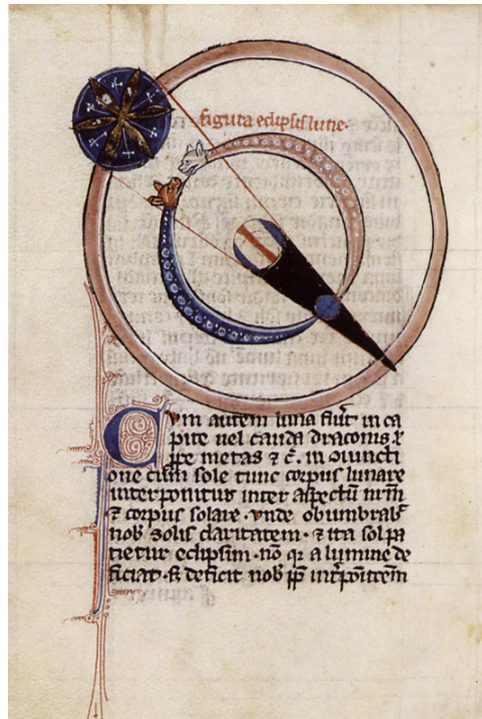 figura eclipsis lune.
Cum autem luna fiut in ca
pite uel cauda draconis ł
ppe metas ⁊ c̄. in ɔiuncti
one cum sole tunc corpus lunare
interponitur inter aspectū nr̄m
⁊ corpus solare. vnde obumbrab̄
nob̄ solis claritatem. ⁊ ita sol pa
tietur eclipsim. nō qr a lumine de
ficiat. s; deficit nob̄ pp̄